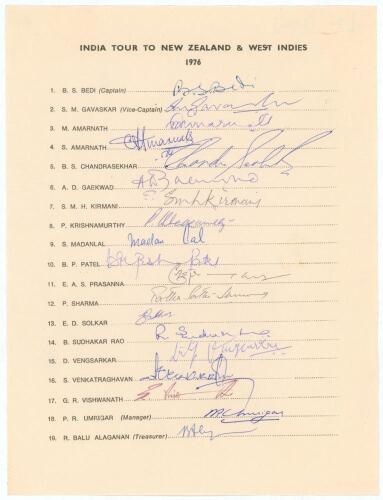 INDIA TOUR TO NEW ZEALAND & WEST INDIES
1976
1. B. S. BEDI (Captain) B.S. Bedi
2. S. M. GAVASKAR (Vice-Captain)
3. M. AMARNATH
4. S. AMARNATH
5. B. S. CHANDRASEKHAR
6. A. D. GAEKWAD
7. S. M. H. KIRMANI SmhKirmani
8. P. KRISHNAMURTHY
9. S. MADANLAL Madan Lal
10. B. P. PATEL
11. E. A. S. PRASANNA
12. P. SHARMA
13. E. D. SOLKAR
14. B. SUDHAKAR RAO
15. D. VENGSARKAR
16. S. VENKATRAGHAVAN
17. G. R. VISHWANATH
18. P. R. UMRIGAR (Manager)
19. R. BALU ALAGANAN (Treasurer)